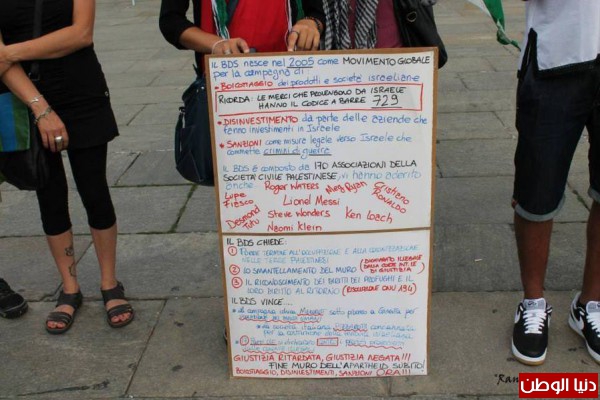 IL BDS NASCE NEL 2005 COME MOVIMENTO GLOBALE
PER LA CAMPAGNA DI
BOICOTTAGGIO DEI PRODOTTI E SOCIETÀ ISRAELIANE
RICORDA: LE MERCI CHE PROVENGONO DA ISRAELE
HANNO IL CODICE A BARRE 729
DISINVESTIMENTO DA PARTE DELLE AZIENDE CHE
FANNO INVESTIMENTI IN ISRAELE
SANZIONI COME MISURE LEGALI VERSO ISRAELE CHE
COMMETTE CRIMINI DI GUERRA
IL BDS È COMPOSTO DA 170 ASSOCIAZIONI DELLA
SOCIETÀ CIVILE PALESTINESE, VI HANNO ADERITO
ANCHE
Roger WATERS
Meg Ryan
Cristiano RONALDO
Lupe Fiasco
Lionel Messi
Desmond Tutu
Steve Wonders
Ken Loach
Naomi Klein
IL BDS CHIEDE:
1 PORRE TERMINE ALL'OCCUPAZIONE E ALLA COLONIZZAZIONE
NELLE TERRE PALESTINESI
2 LO SMANTELLAMENTO DEL MURO (DICHIARATO ILLEGALE
DALLA CORTE INT.LE
DI GIUSTIZIA)
3 IL RICONOSCIMENTO DEI DIRITTI DEI PROFUGHI E IL
LORO DIRITTO AL RITORNO (RISOLUZIONE ONU 194)
IL BDS VINCE...
GIUSTIZIA RITARDATA, GIUSTIZIA NEGATA!!!
FINE MURO DELL'APARTHEID SUBITO!
BOICOTTAGGIO, DISINVESTIMENTI, SANZIONI ORA!!!
دنيا الوطن